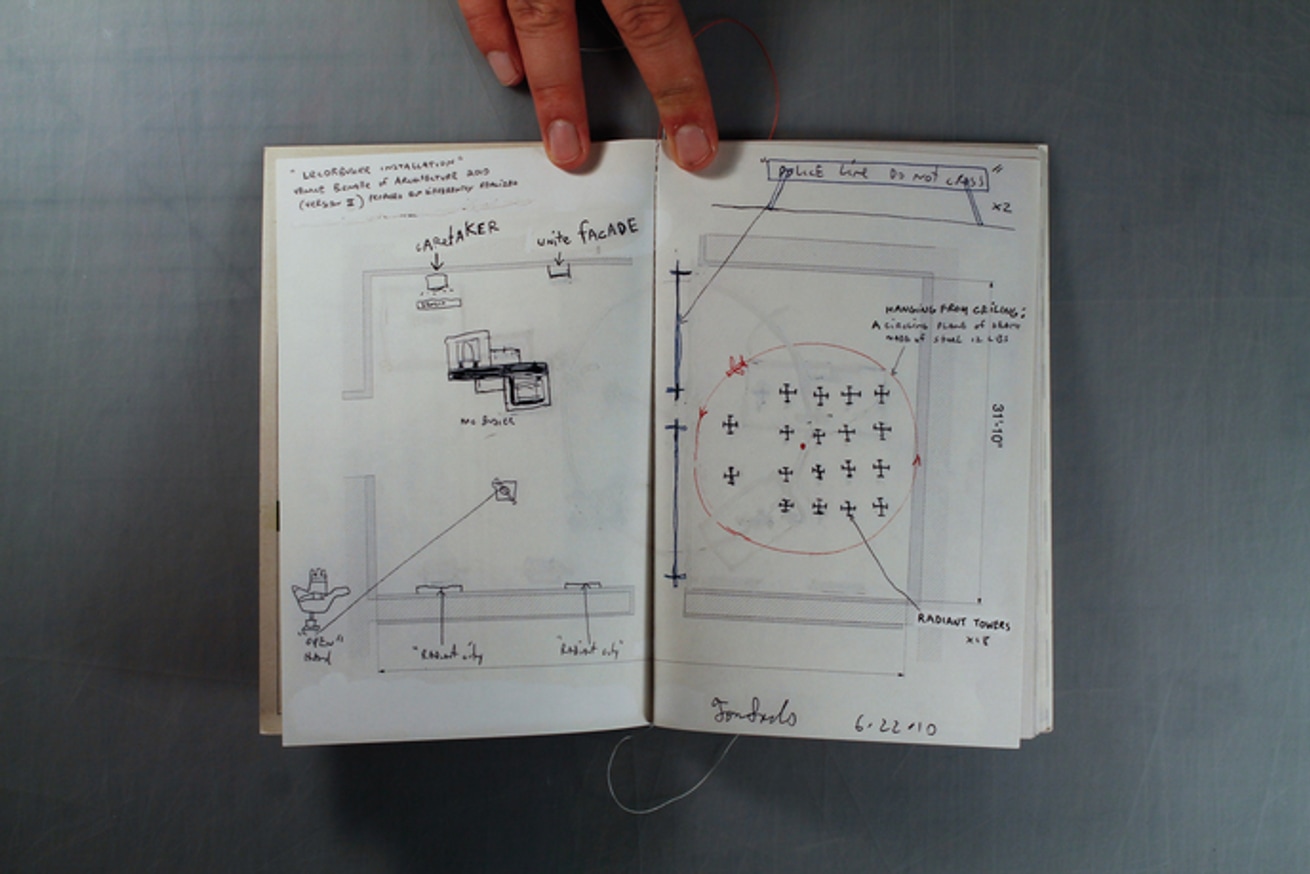 "LECORBUSIER INSTALLATION"
VENICE BIENNALE of ARCHITECTURE 2010
(VERSION II)
CARETAKER
unite FACADE
MC BUSIER
"OPEN"
HAND
"RADIANT city
"RADIANT city"
"POLICE LINE DO NOT CROSS"
x2
HANGING FROM CEILING:
A CIRCLING PLANE of
MADE of STEEL 12 LBS
31'-10"
RADIANT TOWERS
x18
Tom Sachs
6·22·10